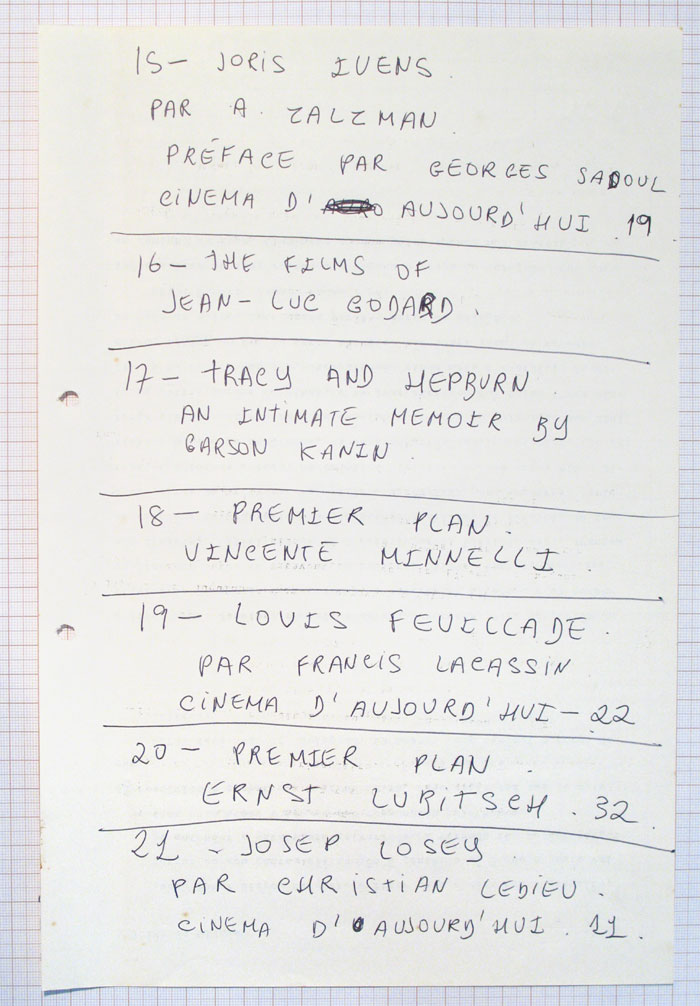 15- JORIS IVENS.
PAR A. ZALZMAN
PRÉFACE PAR GEORGES SADOUL
CINEMA D' AUJOURD'HUI .19
16- THE FILMS OF
JEAN-LUC GODARD.
17- TRACY AND HEPBURN.
AN INTIMATE MEMOIR BY
GARSON KANIN.
18- PREMIER PLAN.
VINCENTE MINNELLI.
19- LOUIS FEUILLADE.
PAR FRANCIS LACASSIN
CINEMA D'AUJOURD'HUI-22
20- PREMIER PLAN.
ERNST LUBITSCH. 32
21- JOSEP LOSEY
PAR CHRISTIAN LEDIEU.
CINEMA D'AUJOURD'HUI. 11.